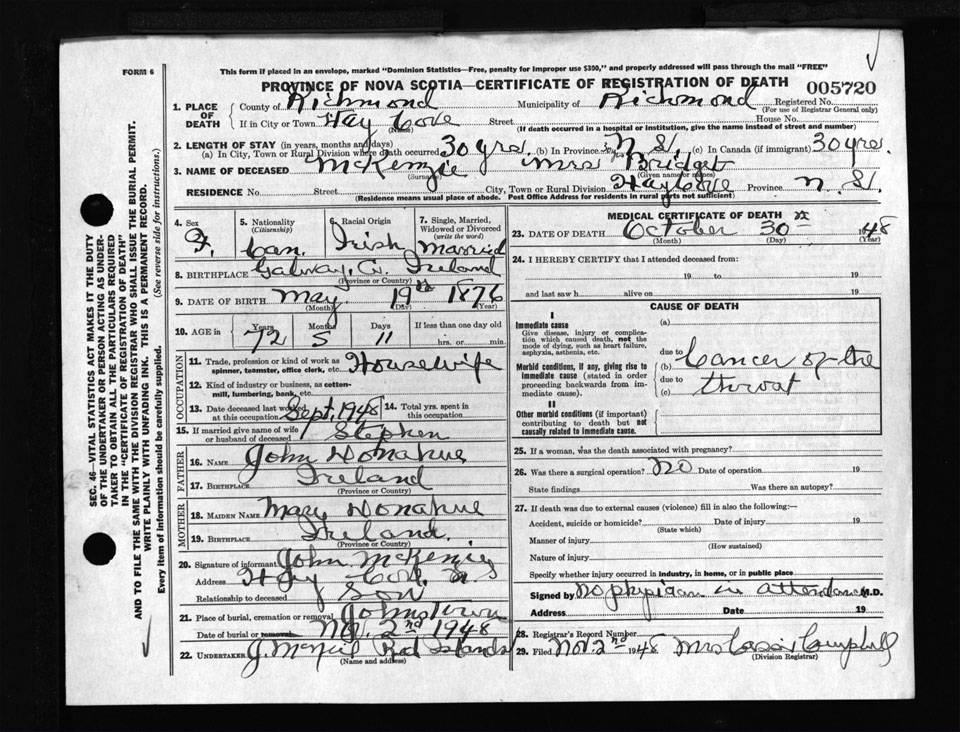 FORM 6
This form if placed in an envelope, marked "Dominion Statistics—Free, penalty for improper use $300," and properly addressed will pass through the mail "FREE"
PROVINCE OF NOVA SCOTIA—CERTIFICATE OF REGISTRATION OF DEATH 005720
1. PLACE OF DEATH County of Richmond Municipality of Richmond Registered No. (For use of Registrar General only)
If in City or Town Hay Cove (Name) Street House No.
(If death occurred in a hospital or institution, give the name instead of street and number)
2. LENGTH OF STAY (in years, months and days)
(a) In City, Town or Rural Division where death occurred 30 yrs. (b) In Province N.S. (c) In Canada (if immigrant) 30 yrs.
3. NAME OF DECEASED McKenzie (Surname) Mrs Bridget (Given name or names)
RESIDENCE No. Street City, Town or Rural Division Hay Cove Province N.S.
(Residence means usual place of abode. Post Office Address for residents in rural parts not sufficient)
4. Sex F.
5. Nationality (Citizenship) Can.
6. Racial Origin Irish
7. Single, Married, Widowed or Divorced (write the word) Married
8. BIRTHPLACE Galway, Ireland (Province or Country)
9. DATE OF BIRTH May (Month) 19th (Day) 1876 (Year)
10. AGE in Years 72 Months 5 Days 11 If less than one day old hrs. or min.
OCCUPATION
11. Trade, profession or kind of work as spinner, teamster, office clerk, etc. Housewife
12. Kind of industry or business, as cotton-mill, lumbering, bank, etc.
13. Date deceased last worked at this occupation Sept, 1948 14. Total yrs. spent in this occupation
15. If married give name of wife or husband of deceased Stephen
FATHER
16. NAME John Donahue
17. Birthplace Ireland (Province or Country)
MOTHER
18. MAIDEN NAME Mary Donahue
19. BIRTHPLACE Ireland. (Province or Country)
20. Signature of informant John McKenzie
Address Hay Cove, N.S.
Relationship to deceased Son
21. Place of burial, cremation or removal Johnstown
Date of burial or removal 2nd 1948
22. UNDERTAKER J. McNeil Red Islands (Name and address)
MEDICAL CERTIFICATE OF DEATH
23. DATE OF DEATH October (Month) 30th (Day) 1948 (Year)
24. I HEREBY CERTIFY that I attended deceased from:
19 to 19
and last saw h alive on 19
CAUSE OF DEATH
I
Immediate cause
Give disease, injury or complication which caused death, not the mode of dying, such as heart failure, asphyxia, asthenia, etc.
(a)
Morbid conditions, if any, giving rise to immediate cause (stated in order proceeding backwards from immediate cause).
due to (b) Cancer of the
due to (c) throat
II
Other morbid conditions (if important) contributing to death but not causally related to immediate cause.
25. If a woman, was the death associated with pregnancy?
26. Was there a surgical operation? No Date of operation 19
State findings Was there an autopsy?
27. If death was due to external causes (violence) fill in also the following:—
Accident, suicide or homicide? (State which) Date of injury 19
Manner of injury (How sustained)
Nature of injury
Specify whether injury occurred in industry, in home, or in public place
Signed by No physician in attendance M.D.
Address Date 19
28. Registrar's Record Number
29. Filed Nov. 2nd 1948 Mrs Campbell (Division Registrar)
SEC. 46—VITAL STATISTICS ACT MAKES IT THE DUTY
OF THE UNDERTAKER OR PERSON ACTING AS UNDERTAKER TO OBTAIN ALL THE PARTICULARS REQUIRED
IN THE "CERTIFICATE OF REGISTRATION OF DEATH"
AND TO FILE THE SAME WITH THE DIVISION REGISTRAR WHO SHALL ISSUE THE BURIAL PERMIT.
WRITE PLAINLY WITH UNFADING INK. THIS IS A PERMANENT RECORD.
Every item of information should be carefully supplied. (See reverse side for instructions.)